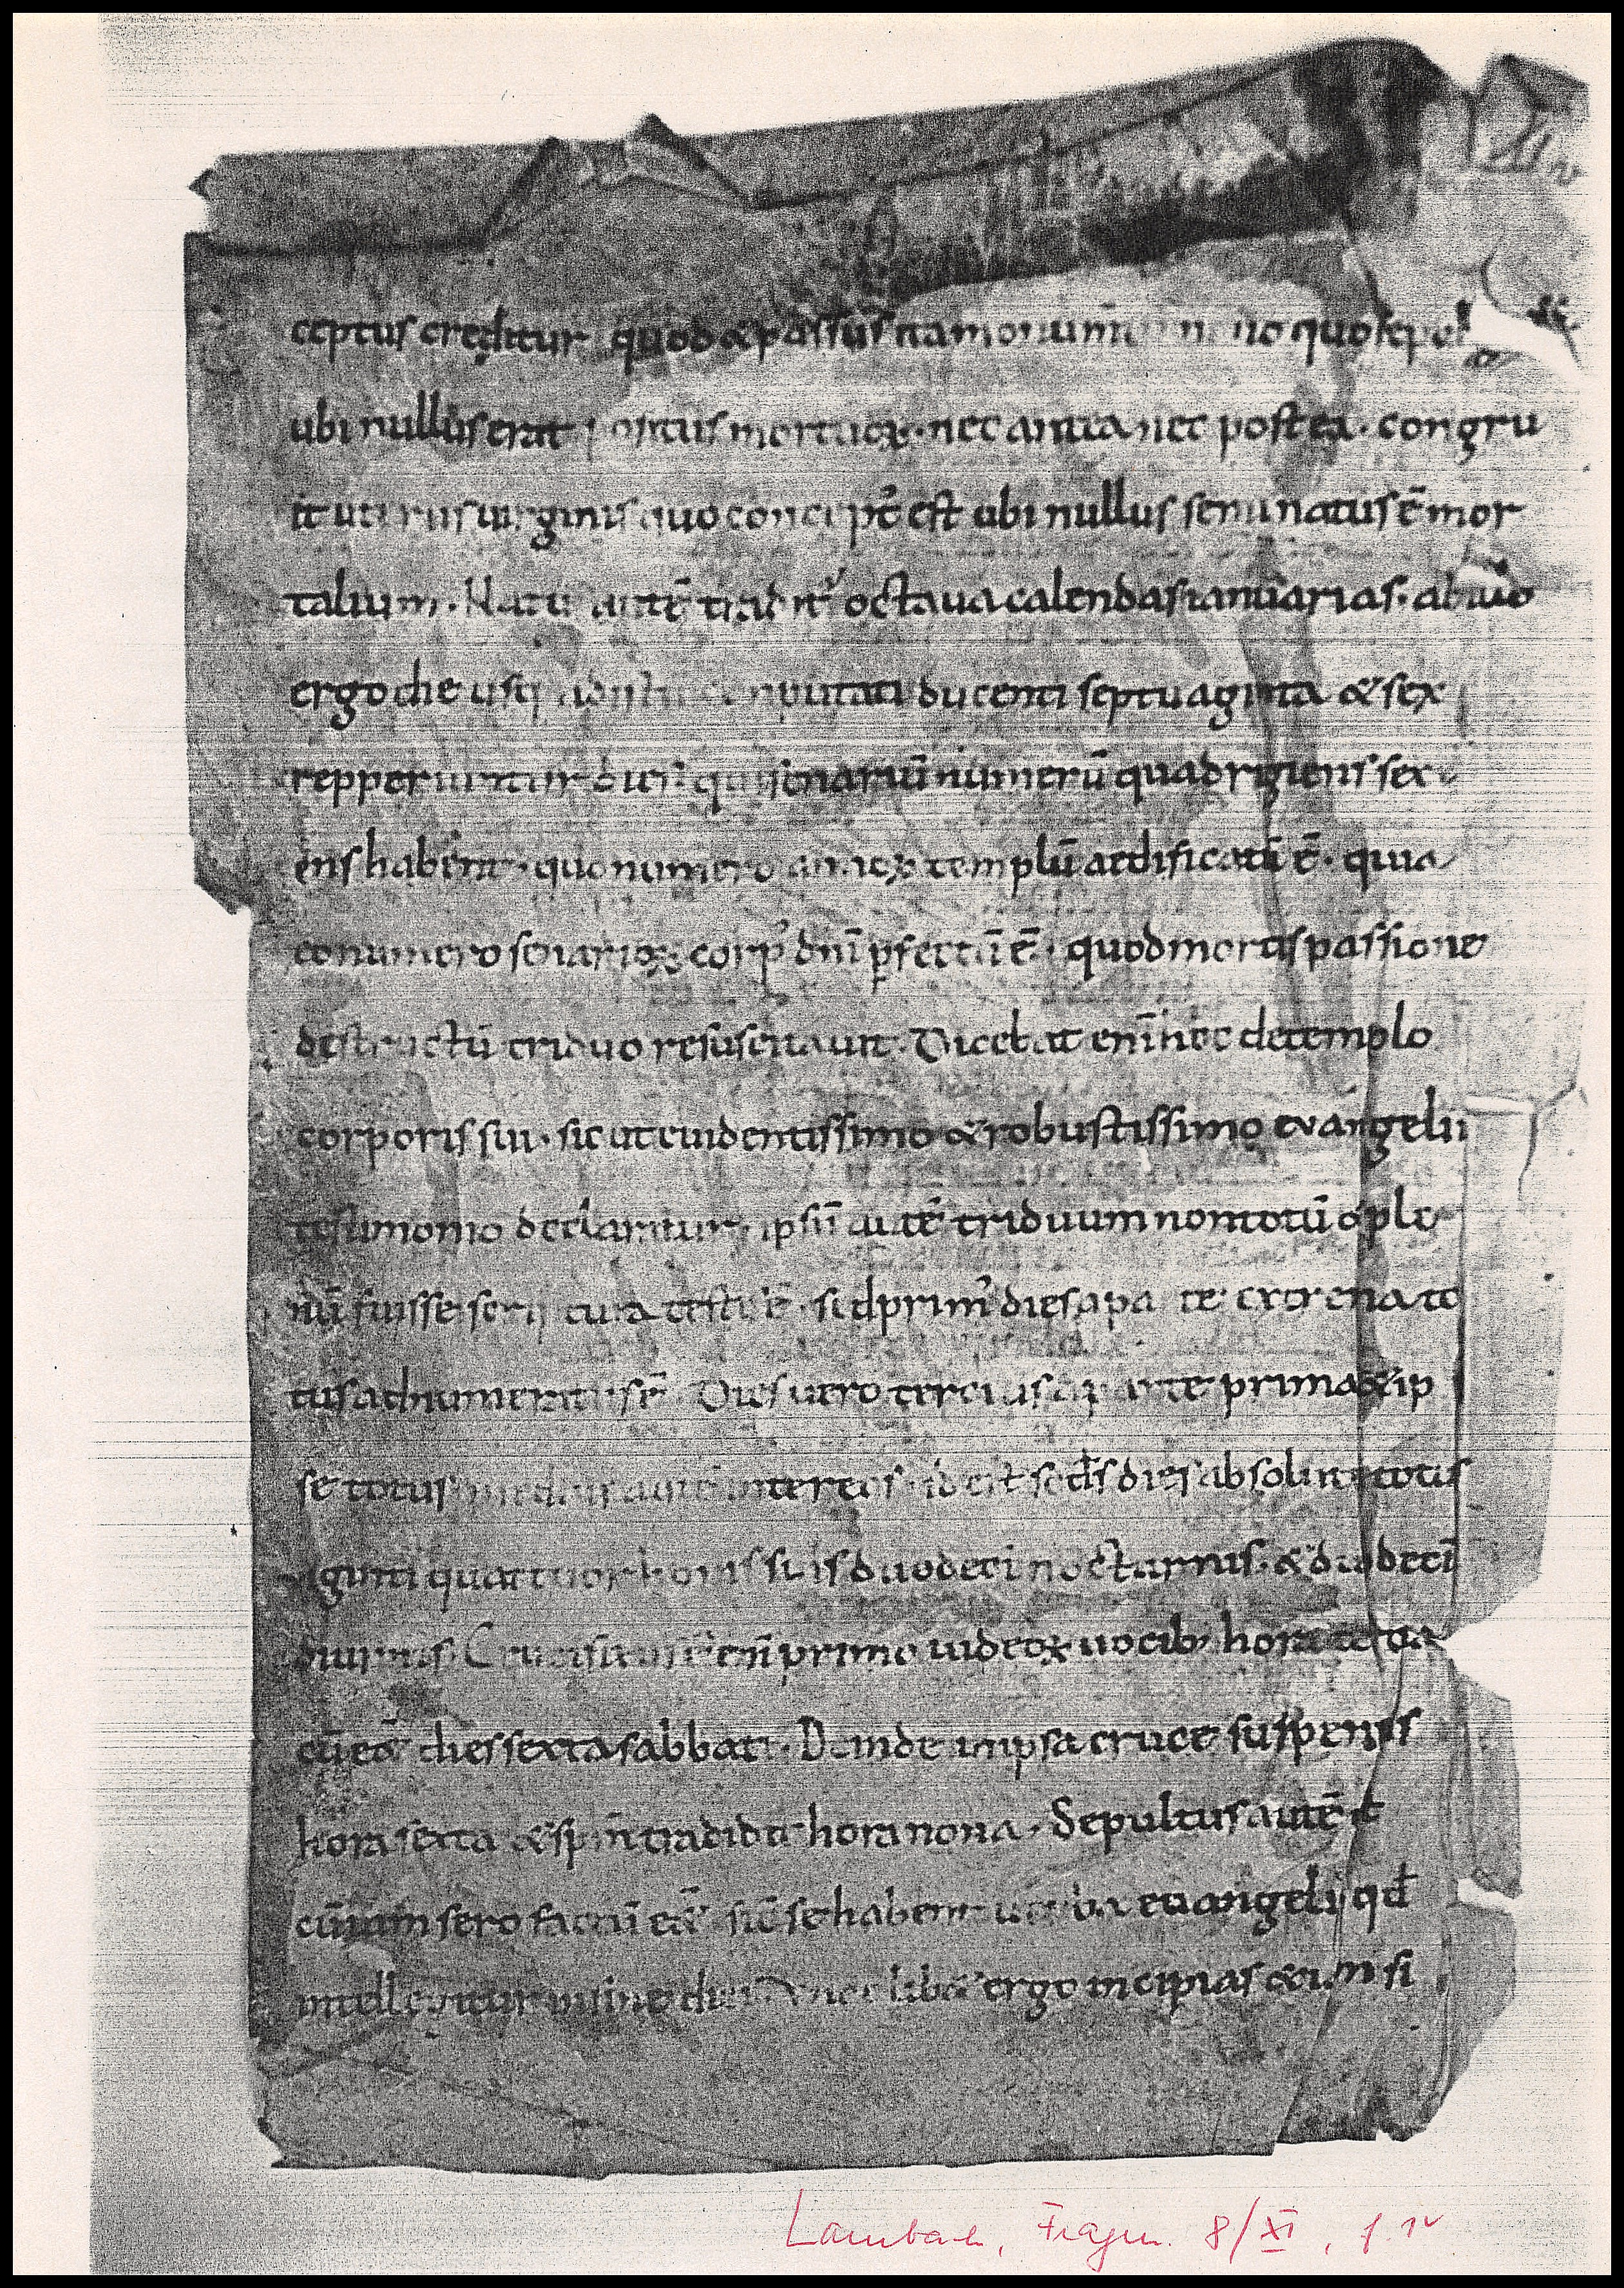 ceptus creditur quod & passus ita monum no quo sepel
ubi nullus erat positus mortuoꝝ · nec antea nec postea · congru
it uterus virginis quo concept᷑ est ubi nullus seminatus ē mor
talium · Natus autē tradit᷑ octaua calendas ianuarias · ab illo
ergo die usq; ad conputati ducenti septuaginta & sex
repperiuntur dies · qui senariū numerū quadragiens sex
iens habent · quo numero annoꝝ templū aedificatū ē · quia
eo numero senarioꝝ corp' dn̄i ꝑfectū ē · quod mortis passione
destructū triduo resuscitauit · Dicebat enī hoc de templo
corporis sui · sicut euidentissimo & robustissimo euangelii
testimonio declaratur · ipsū autē triduum non totū & ple
nū fuisse scriptura testis ē · sed prim' dies a parte extrema to
tus adnumeratus ē Dies uero tercius a parte prima & ip
se totus medius autē inter eos id est scd's dies absolute totus
uiginti quattuor horis suis duodeci nocturnis · & duodecī
diurnis · Crucifixus ē enī primo iudeoꝝ uocib; hora tertia
cū e&̄ dies sexta sabbati · Deinde in ipsa cruce suspensus
hora sexta & spm̄ tradidit hora nona · Sepultus autē ÷
cū iam sero factū e&̄ sic̄ se habent uerba euangelii qd̄
intellegitur in fine diei lib& ergo incipias &iam si
Lambach, Fragm. 8/XI, f. 1v